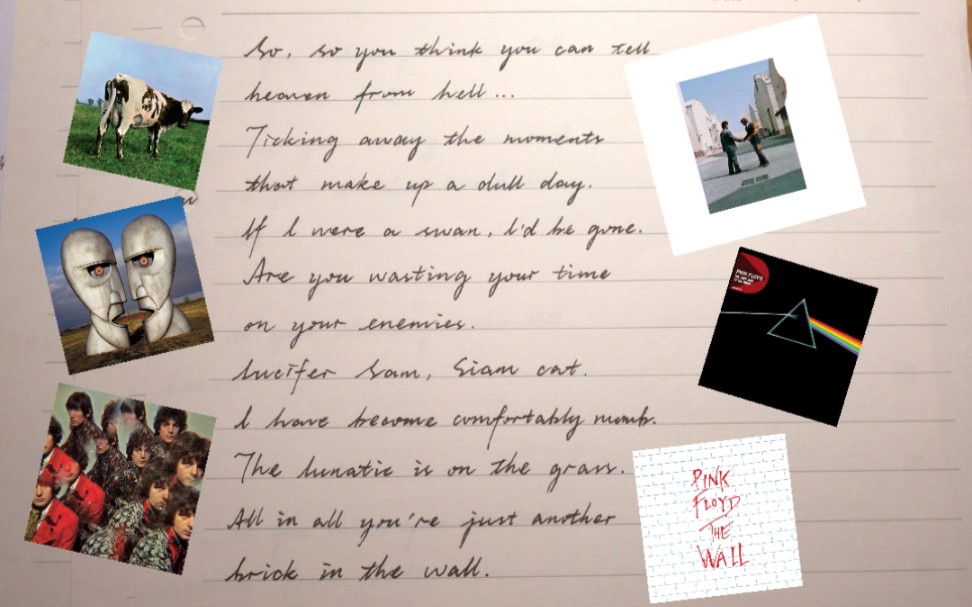 So, so you think you can tell
heaven from hell...
Ticking away the moments
that make up a dull day.
If I were a swan, I'd be gone.
Are you wasting your time
on your enemies.
Lucifer Sam, Siam cat.
I have become comfortably numb.
The lunatic is on the grass.
All in all you're just another
brick in the wall.
PINK FLOYD
PINK
FLOYD
THE
WALL